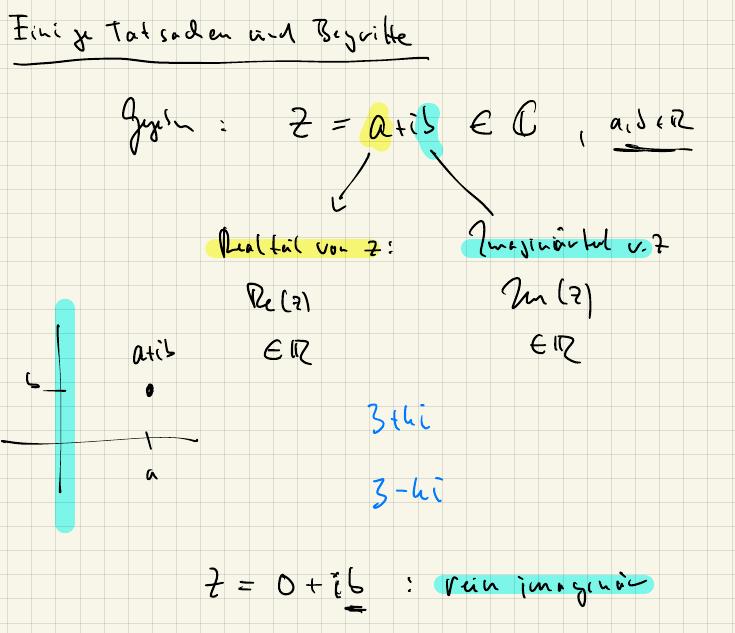 Einige Tatsachen und Begriffe
Gegeben : z = a+ib ∈ ℂ , a,b ∈ ℝ
Realteil von z: Imaginärteil v. z
Re(z) Im(z)
∈ ℝ ∈ ℝ
a+ib
b
3+4i
a
3-4i
z = 0 + ib : rein imaginär